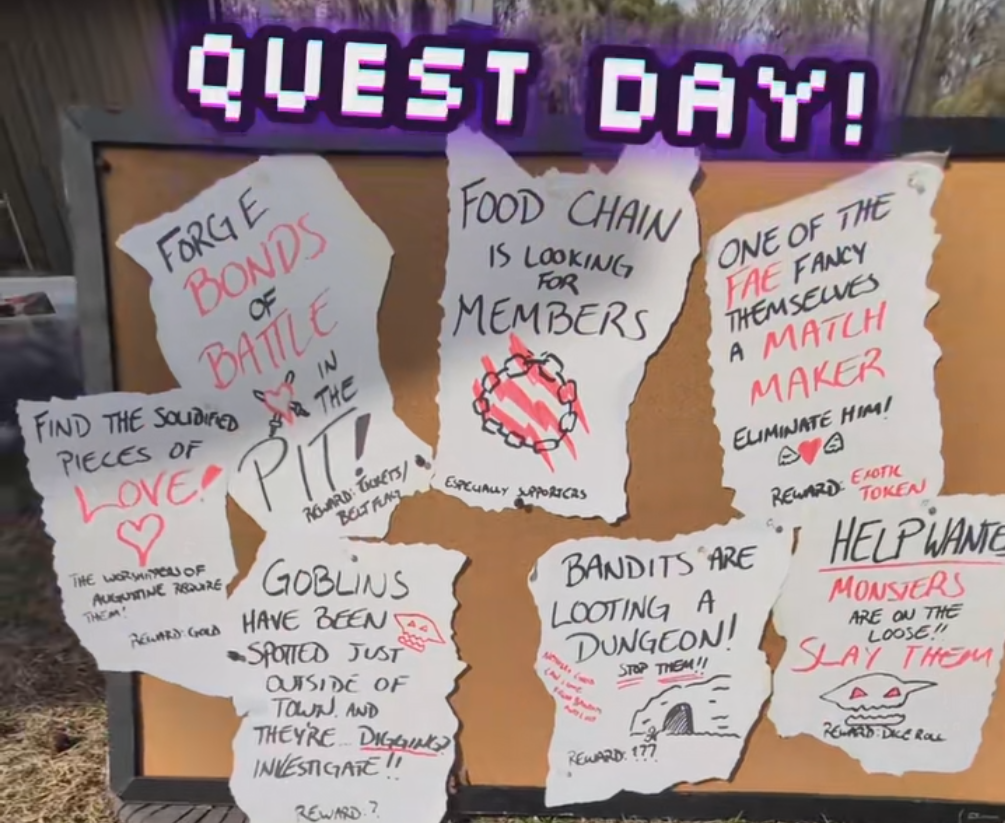 QUEST DAY!
FORGE
BONDS
OF
BATTLE
IN
THE
PIT!
REWARD: TICKETS/
BELT FLAG
FOOD CHAIN
IS LOOKING
FOR
MEMBERS
ESPECIALLY SUPPORTERS
ONE OF THE
FAE FANCY
THEMSELVES
A MATCH
MAKER
ELIMINATE HIM!
REWARD: EXOTIC
TOKEN
FIND THE SOLIDIFIED
PIECES OF
LOVE!
THE WORSHIPERS OF
AUGUSTINE REQUIRE
THEM!
REWARD: GOLD
GOBLINS
HAVE BEEN
SPOTTED JUST
OUTSIDE OF
TOWN. AND
THEY'RE... DIGGING?
INVESTIGATE!!
REWARD: ?
BANDITS ARE
LOOTING A
DUNGEON!
STOP THEM!!
REWARD: ???
HELP WANTE
MONSTERS
ARE ON THE
LOOSE!!
SLAY THEM
REWARD: DICE ROLL